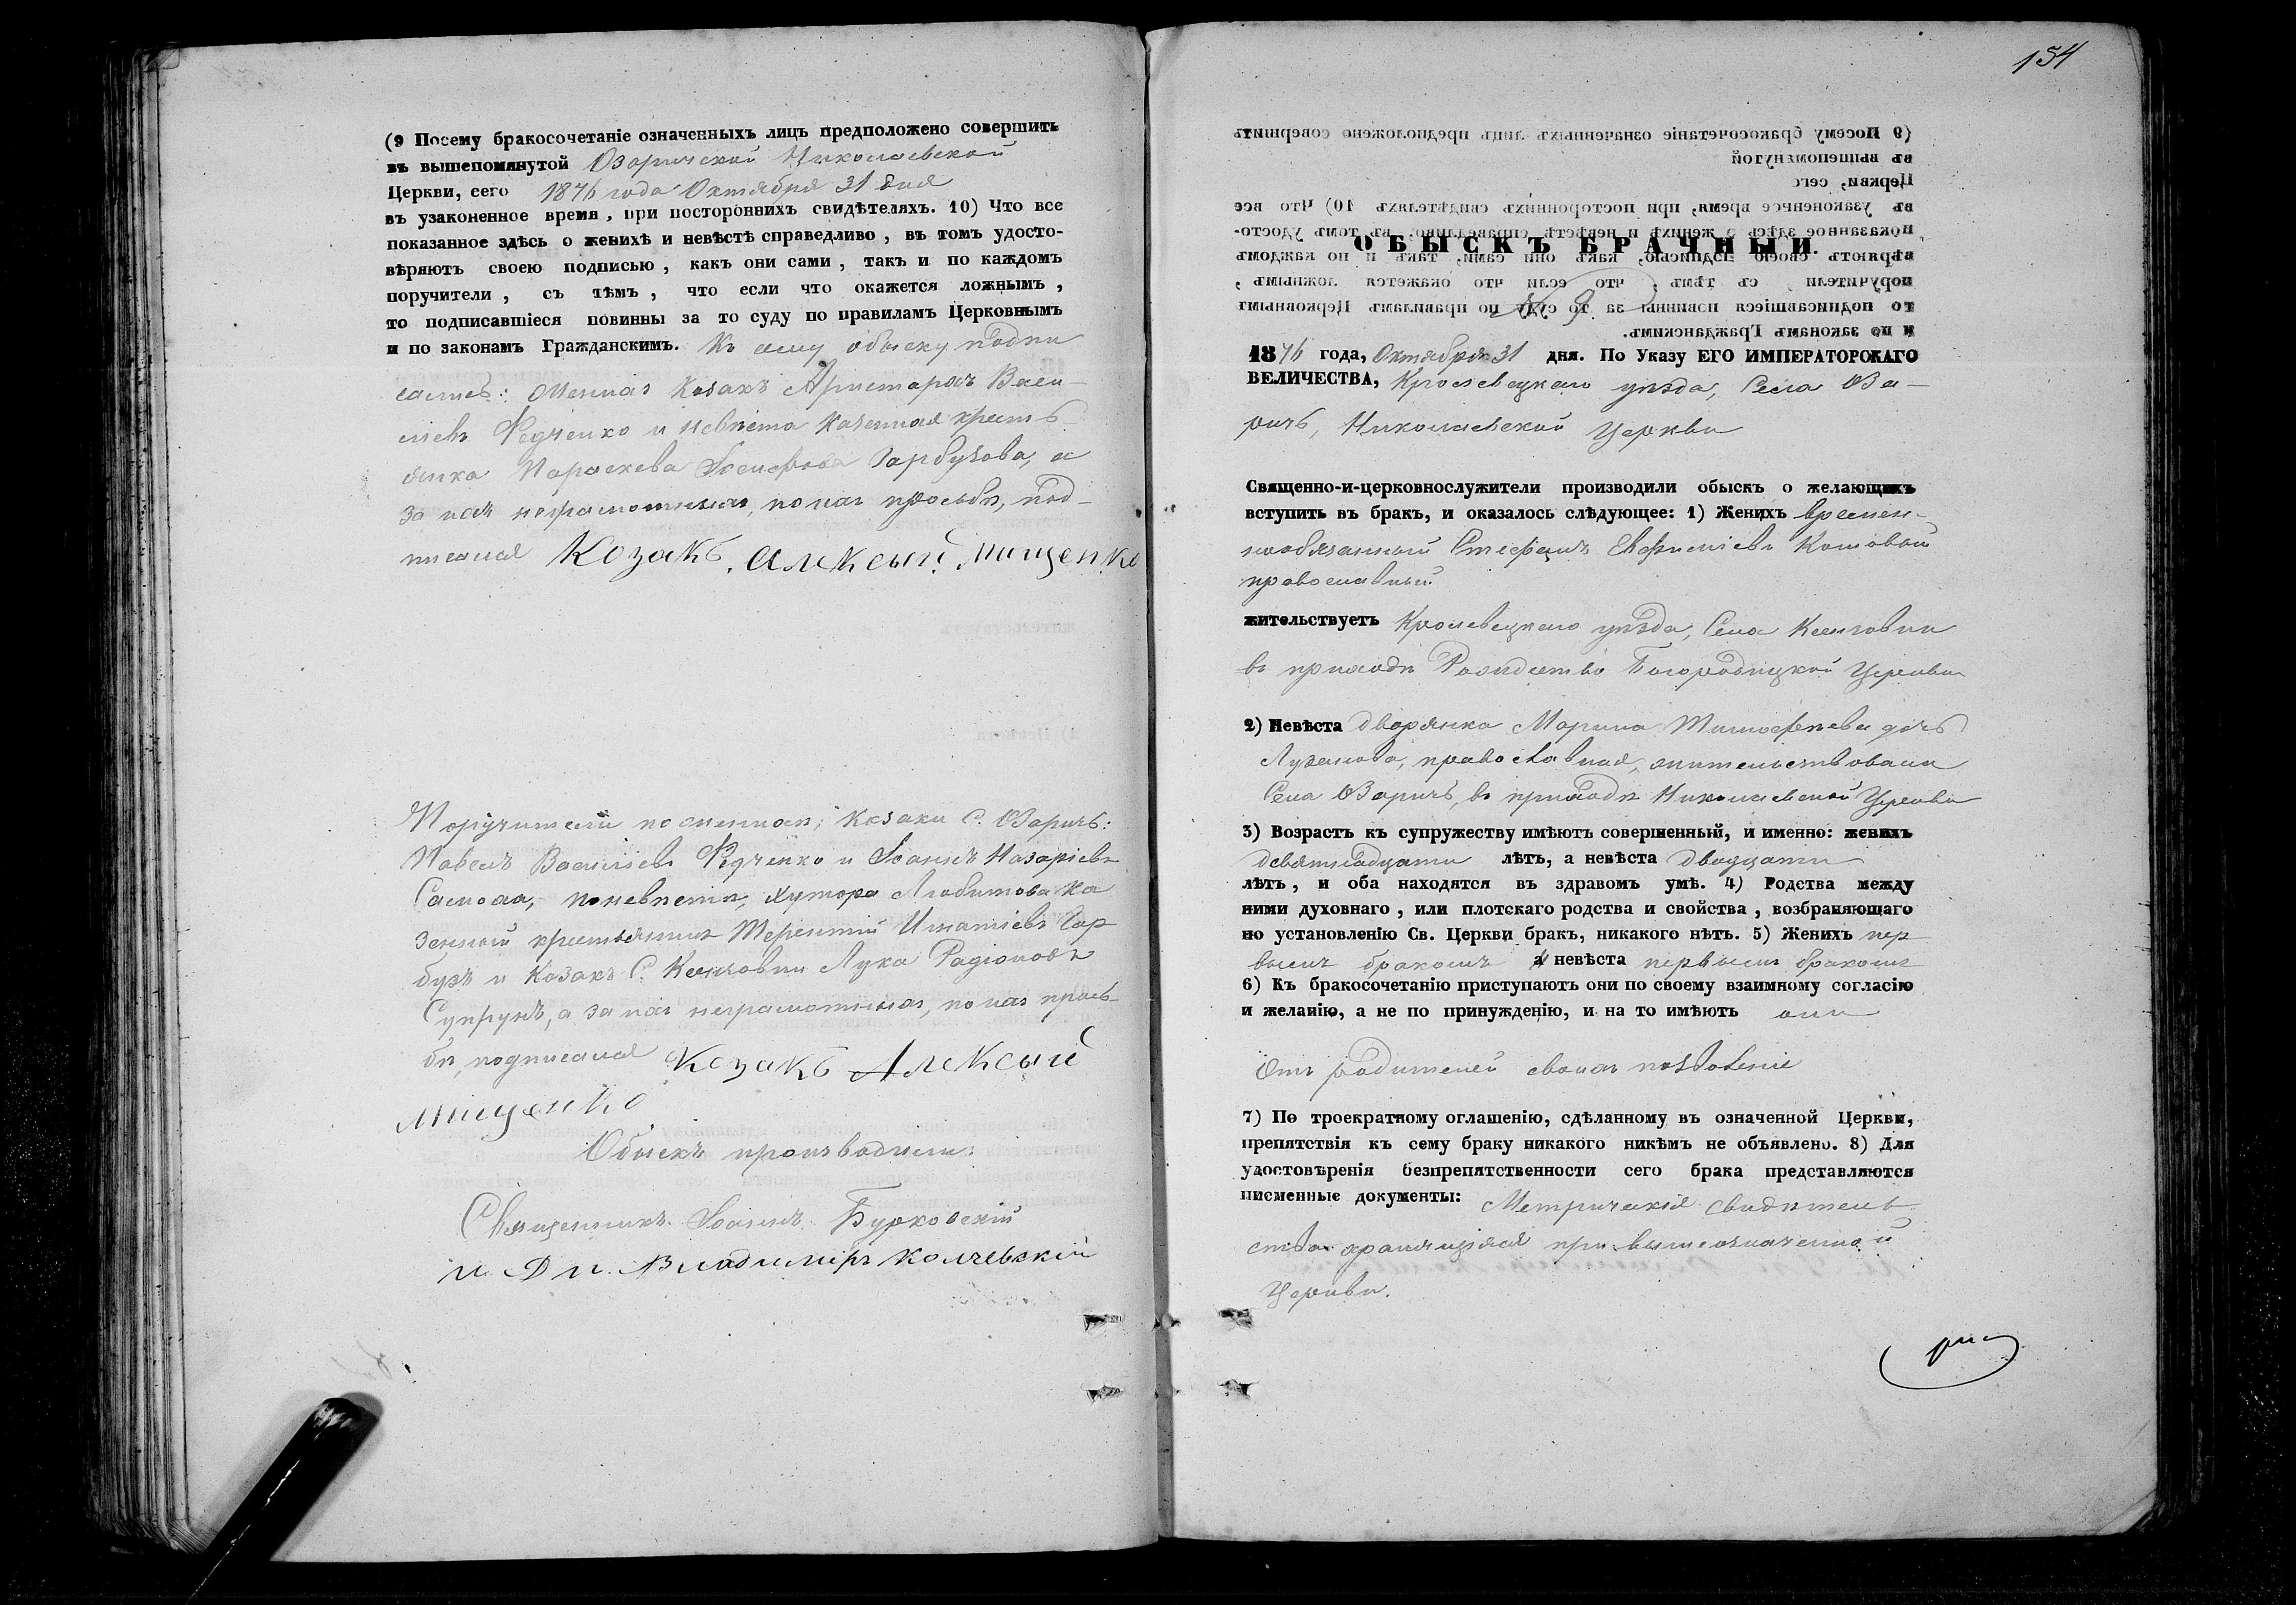 (9 Посему бракосочетаніе означенныхъ лицъ предположено совершить
въ вышепомянутой Озаричской Николаевской
Церкви, сего 1876 года Октября 31 дня
въ узаконенное время, при постороннихъ свидѣтеляхъ. 10) Что все
показанное здѣсь о женихѣ и невѣстѣ справедливо, въ томъ удосто-
вѣряютъ своею подписью, какъ они сами, такъ и по каждомъ
поручители, съ тѣмъ, что если что окажется ложнымъ,
то подписавшіеся повинны за то суду по правиламъ Церковнымъ
и по законамъ Гражданскимъ. Къ сему обыску подпи
сались: Женихъ Козакъ Аристархъ Васи-
ліевъ Федченко и невѣста казенная кресть-
янка Параскева Іосифова Гарбузова, а
за нихъ неграмотныхъ, по ихъ просьбѣ, под-
писался Козакъ Алексый Мищенко
Поручители по женихѣ; Козаки С. Озаричъ:
Павелъ Василіевъ Федченко и Іоаннъ Назаріевъ
по невѣстѣ, Хутора Любитова ка
зенный крестьянинъ Терентій Игнатіевъ Гар
бузъ и Козакъ С. Ксензовки Лука Радіоновъ
Супрунъ, а за нихъ неграмотныхъ, по ихъ прось-
бѣ, подписался Козакъ Алексый
Мищенко
Обыскъ производили:
Священникъ Іоаннъ Бурковскій
и Д п. Владимиръ Колчевскій
154
ОБЫСКЪ БРАЧНЫЙ.
№ 9.
1876 года, Октября 31 дня. По Указу ЕГО ИМПЕРАТОРСКАГО
ВЕЛИЧЕСТВА, Кролевецкаго уѣзда, Села Оза-
ричъ, Николаевской Церкви
Священно-и-церковнослужители производили обыскъ о желающихъ
вступить въ бракъ, и оказалось слѣдующее: 1) Женихъ времен-
нообязанный Стефанъ Евфиміевъ Кошовой
православный
жительствуетъ Кролевецкаго уѣзда, Села Ксензовки
въ приходѣ Рождество Богородицкой Церкви
2) Невѣста дворянка Марина Тимофеева дочь
православная, жительствовала
Села Озаричъ, въ приходѣ Николаевской Церкви
3) Возрастъ къ супружеству имѣютъ совершенный, и именно: женихъ
девятнадцати лѣтъ, а невѣста двадцати
лѣтъ, и оба находятся въ здравомъ умѣ. 4) Родства между
ними духовнаго, или плотскаго родства и свойства, возбраняющаго
по установленію Св. Церкви бракъ, никакого нѣтъ. 5) Женихъ пер
вымъ бракомъ а невѣста первымъ бракомъ
6) Къ бракосочетанію приступаютъ они по своему взаимному согласію
и желанію, а не по принужденію, и на то имѣютъ они
отъ родителей своихъ позволеніе
7) По троекратному оглашенію, сдѣланному въ означенной Церкви,
препятствія къ сему браку никакого никѣмъ не объявлено. 8) Для
удостовѣренія безпрепятственности сего брака представляются
писменные документы: Метрическія свидѣтель-
ства хранящіяся при вышеозначенной
Церкви.